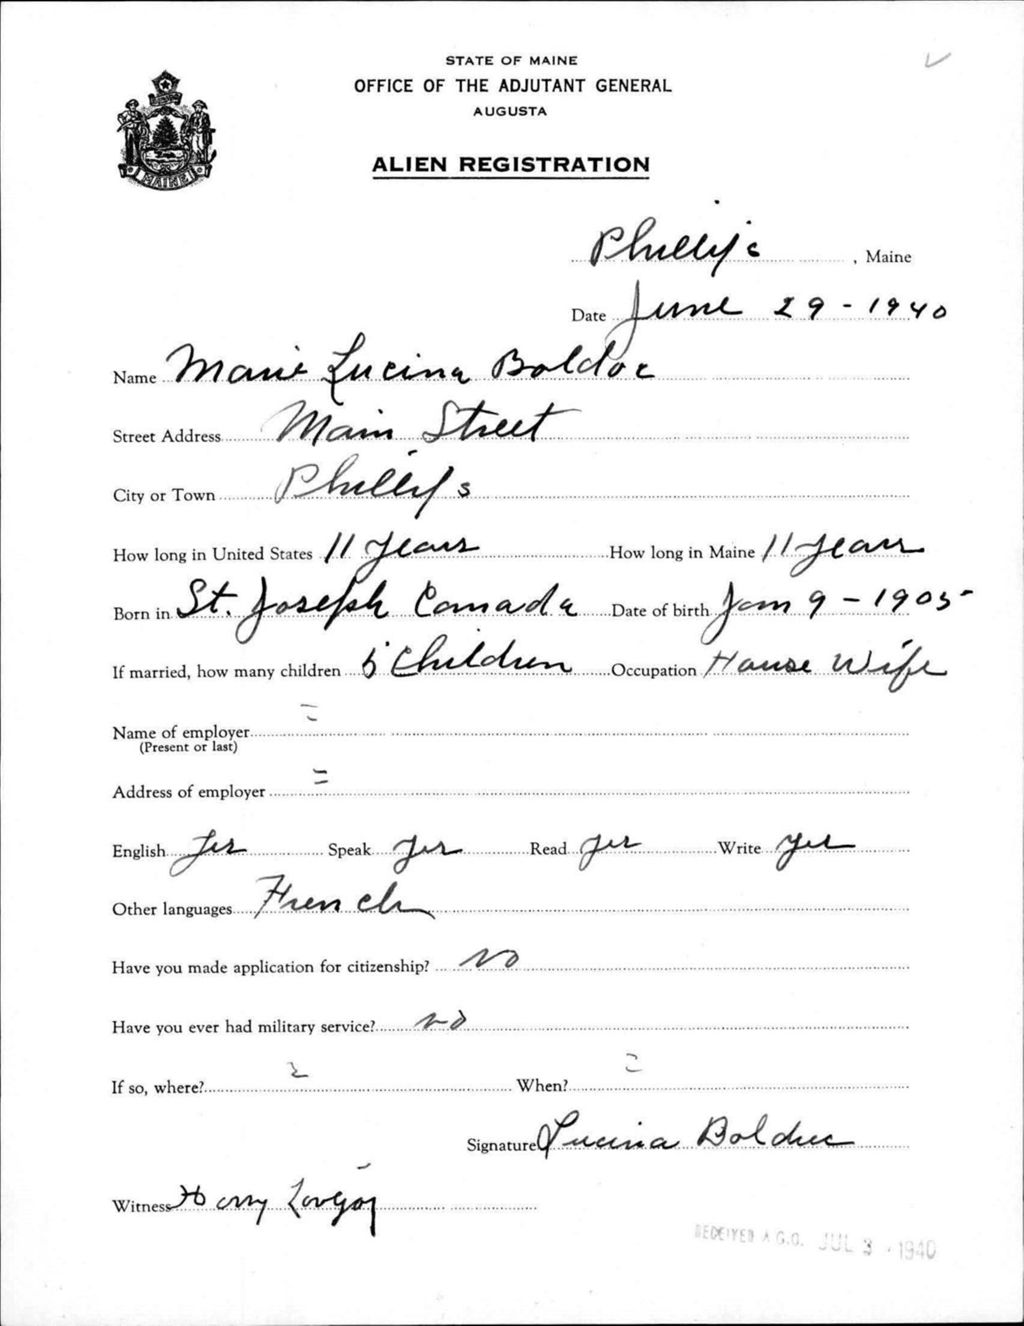 STATE OF MAINE
OFFICE OF THE ADJUTANT GENERAL
AUGUSTA
ALIEN REGISTRATION
MAINE
Phillips, Maine
Date June 29 - 1940
Name Marie Lucina Boldoc
Street Address Main Street
City or Town Phillips
How long in United States 11 years How long in Maine 11 years
Born in St. Joseph Canada Date of birth Jan 9 - 1905
If married, how many children 5 Children Occupation House Wife
Name of employer
(Present or last)
Address of employer
English Yes Speak Yes Read Yes Write Yes
Other languages French
Have you made application for citizenship? NO
Have you ever had military service? NO
If so, where? When?
Signature Lucina Bolduc
Witness Harry Lovejoy
RECEIVED A.G.O. JUL 3 - 1940